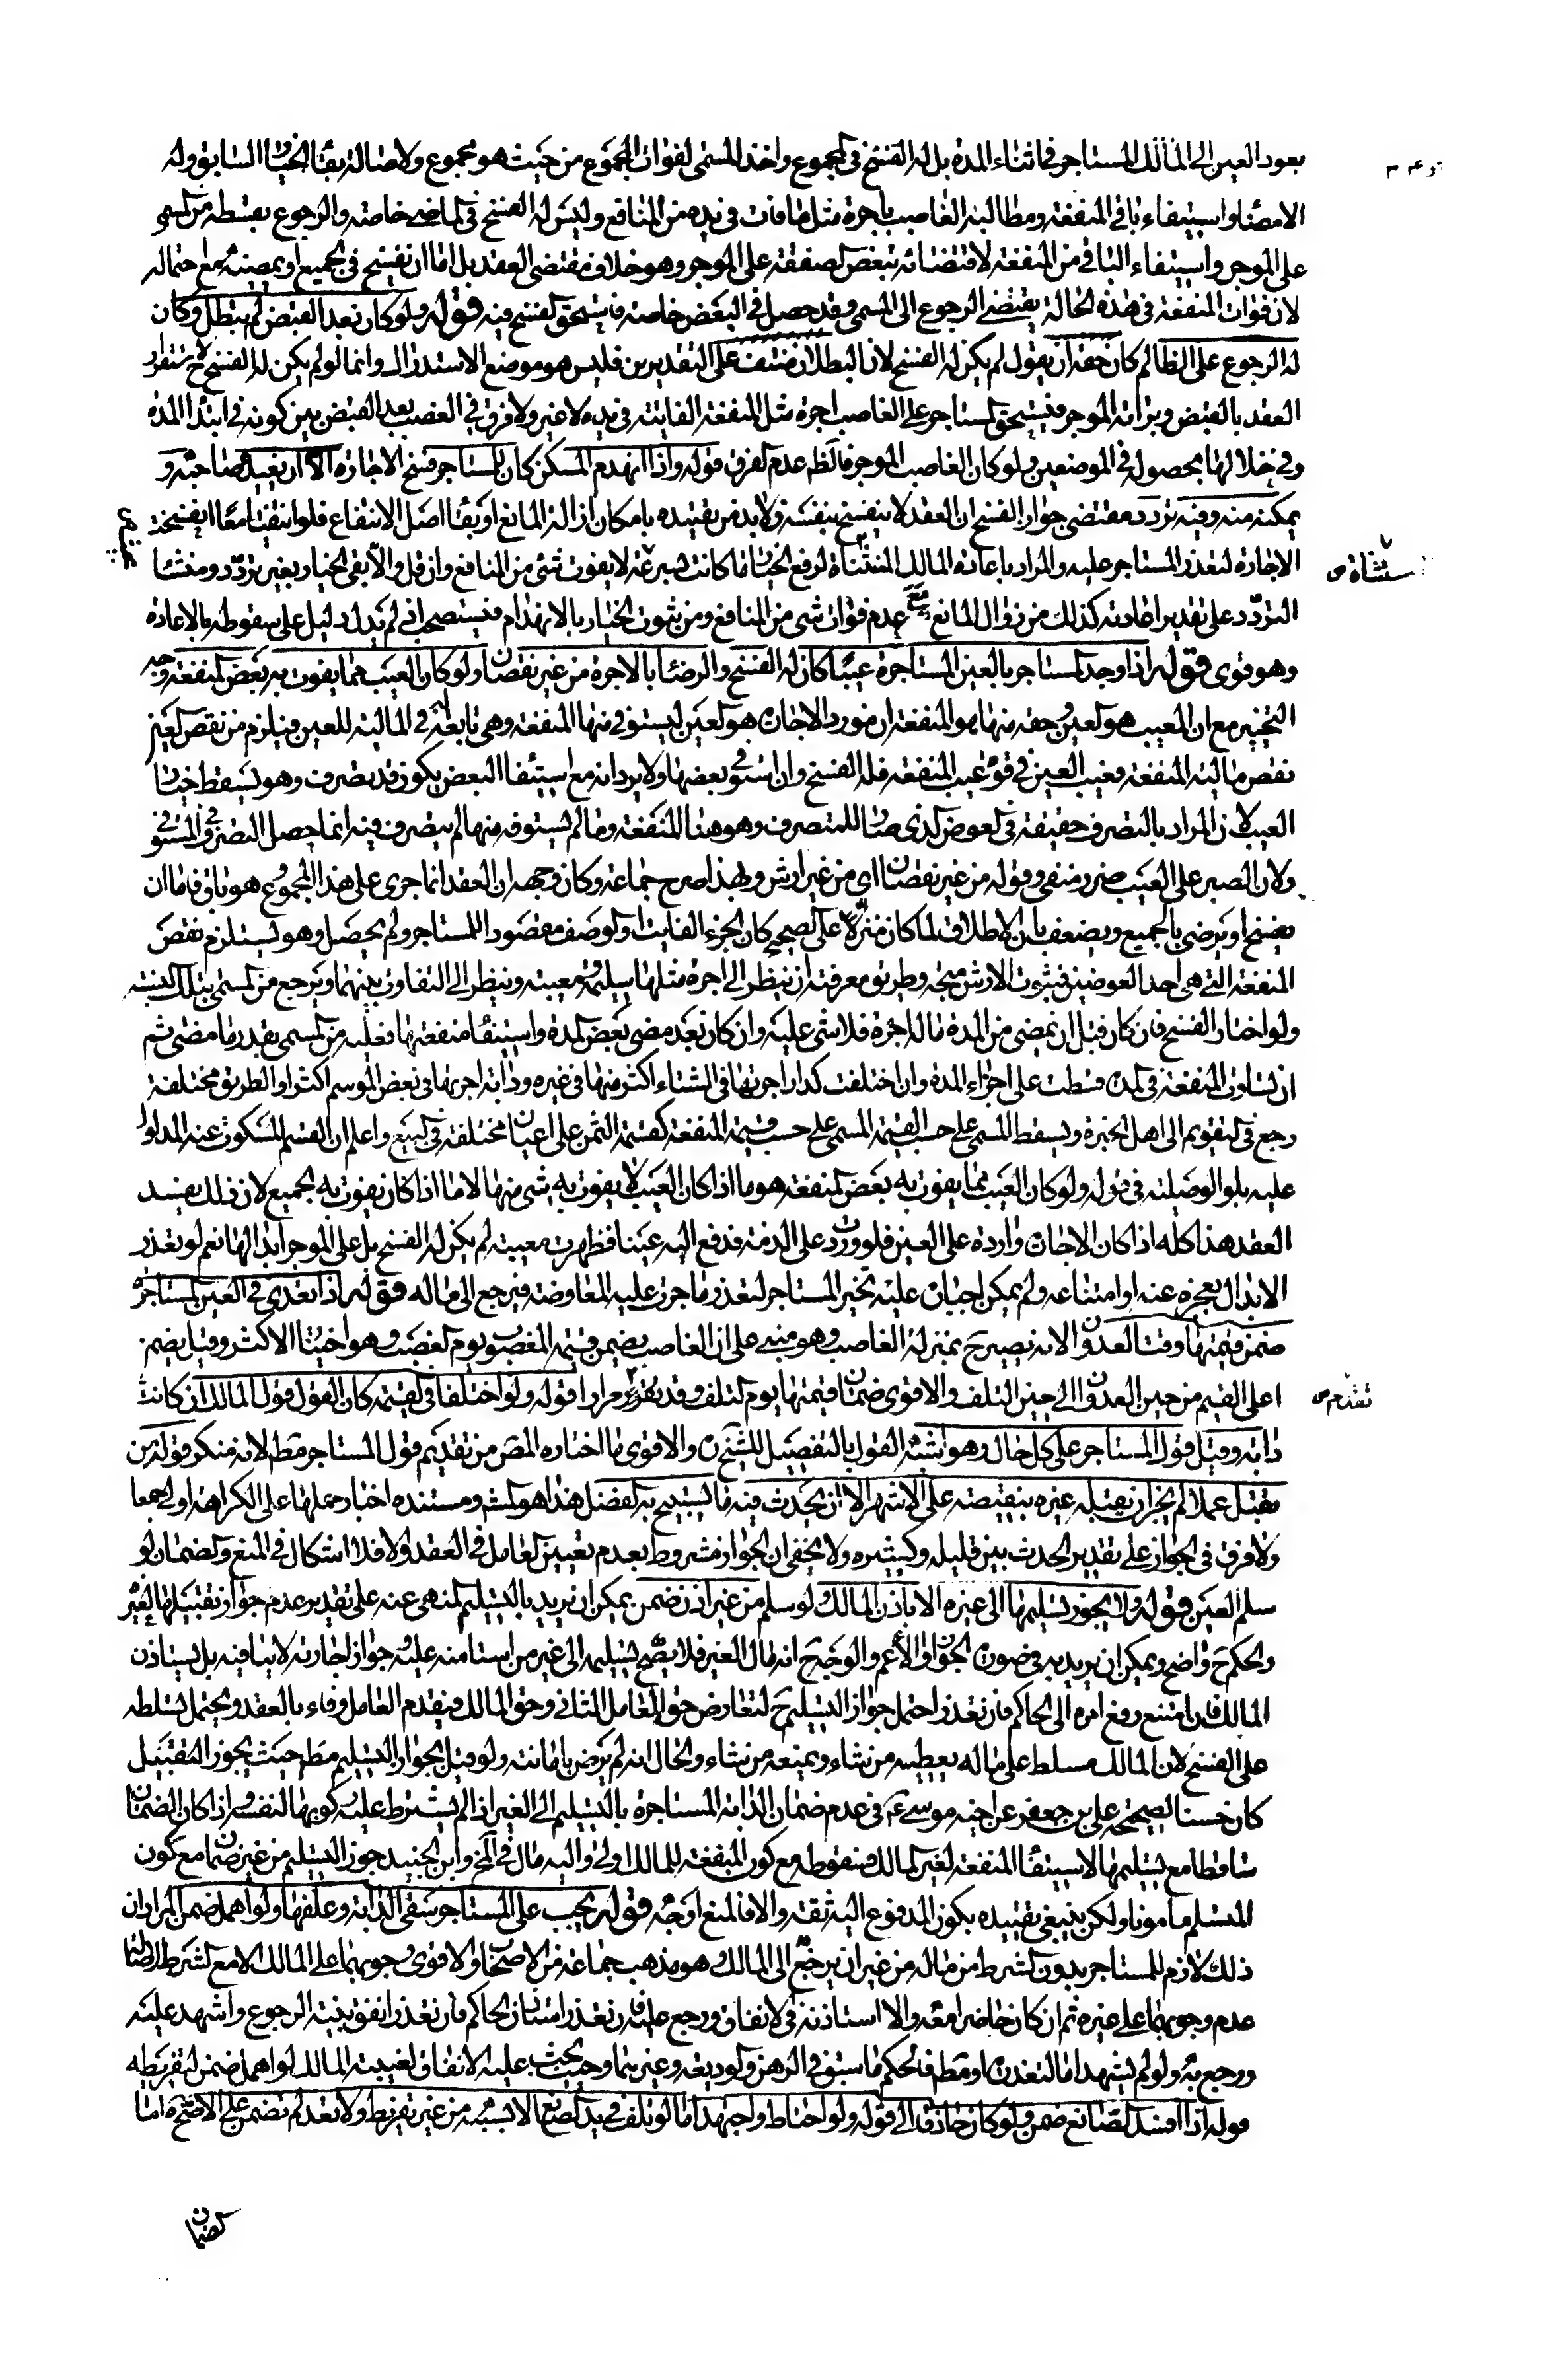 بعود العين الى المالك المستاجر فى اثناء المدة بل له الفسخ فى المجموع واخذ المسمى لفوات المجموع من حيث هو مجموع ولاصالة بقاء الخيار السابق وله
الامضاء واستيفاء باقى المنفعة ومطالبة الغاصب باجرة مثل ما فات فى يده من المنافع وليس له الفسخ فى الماضى خاصة والرجوع بقسطه من المسمى
على الموجر واستيفاء الباقى من المنفعة لاقتضائه تبعض الصفقة على الموجر وهو خلاف مقتضى العقد بل اما ان يفسخ فى الجميع او يمضيه مع احتماله
لان فوات المنفعة فى هذه الحالة يقتضى الرجوع الى المسمى وقد حصل فى البعض خاصة فاستحق الفسخ فيه قوله ولو كان بعد القبض لم يبطل وكان
له الرجوع على الظالم كان حقه ان يقول لم يكن له الفسخ لان البطلان منتف على التقديرين فليس هو موضع الاستدراك وانما لو لم يكن له الفسخ ح لاستقرار
العقد بالقبض وبرائة الموجر فيستحق المستاجر على الغاصب اجرة مثل المنفعة الفايتة فى يده لا غير ولا فرق فى الغصب بعد القبض بين كونه فى ابتداء المدة
وفى خلالها بحصوله فى الموضعين ولو كان الغاصب الموجر فالظ عدم الفرق قوله واذا انهدم المسكن كان للمستاجر فسخ الاجارة الا ان يعيد صاحبه و
يمكنه منه وفيه تردد مقتضى جواز الفسخ ان العقد لا ينفسخ بنفسه ولا بد من تقييده بامكان ازالة المانع او بقاء اصل الانتفاع فلو انتفيا معا انفسخت
الاجارة لتعذر المستاجر عليه والمراد باعادة المالك المثناة لرفع الخيار ما كانت بسرعة لا يفوت شئ من المنافع وان قل والا بقى الخيار بغير تردد ومنشا
التردد على تقدير اعادته كذلك من زوال المانع مع عدم فوات شى من المنافع ومن ثبوت الخيار بالانهدام فيستصحب اذ لم يدل دليل على سقوطه بالاعادة
وهو قوى قوله اذا وجد المستاجر بالعين المستاجرة عيبا كان له الفسخ والرضا بالاجرة من غير نقصان ولو كان العيب مما يفوت به بعض المنفعة وجه
التخيير مع ان المعيب هو العين وحقه منها هو المنفعة ان مورد الاجارة هو العين ليستوفى منها المنفعة وهى تابعة فى المالية للعين فيلزم من نقص العين
نقص مالية المنفعة فعيب العين فى قوة عيب المنفعة فله الفسخ وان استوفى بعضها ولا يرد انه مع استيفاء البعض يكون قد تصرف وهو يسقط خيار
العيب لان المراد بالتصرف حقيقة فى العوض الذى صار للمتصرف وهو هنا المنفعة وما لم يستوفه منها لم يتصرف فيه انما حصل التصرف فى المستوفى
ولان الصبر على العيب ضرر منفى وقوله من غير نقصان اى من غير ارش وبهذا صرح جماعة وكان وجهه ان العقد انما جرى على هذا المجموع هو باق فاما ان
يفسخ او يرضى بالجميع ويضعف بان الاطلاق لما كان منزلا على الصحيح كان الجزء الفايت او الوصف مقصودا للمستاجر ولم يحصل وهو يستلزم نقص
المنفعة التى هى احد العوضين فثبوت الارش متجه وطريق معرفته ان ينظر الى اجرة مثلها سليمة ومعيبة وينظر الى التفاوت بينهما ويرجع من المسمى بتلك النسبة
ولو اختار الفسخ فان كان قبل ان يمضى من المدة ماله اجرة فلا شى عليه وان كان بعد مضى بعض المدة واستيفاء منفعتها فعليه من المسمى بقدر ما مضى ثم
ان تساوت المنفعة فى المدة قسطت على اجزاء المدة وان اختلفت كدار اجرتها فى الشتاء اكثر منها فى غيره ودابة اجرتها فى بعض الموسم اكثر او الطريق مختلفة
رجع فى التقويم الى اهل الخبرة ويسقط المسمى على حسب القيمة المسمى على حسب قيمة المنفعة كقسمة الثمن على اعيان مختلفة فى البيع واعلم ان القسم المسكوت عنه المدلول
عليه بلو الوصلية فى قوله ولو كان العيب مما يفوت به بعض المنفعة هو ما اذا كان العيب لا يفوت به شى منها لا ما اذا كان يفوت به الجميع لان ذلك يفسد
العقد هذا كله اذا كان الاجارة واردة على العين فلو وردت على الذمة فدفع اليه عينا فظهرت معيبة لم يكن له الفسخ بل على الموجر ابدالها نعم لو تعذر
الابدال بعجزه عنه او امتناعه ولم يمكن اجباره عليه تخير المستاجر لتعذر ما جرت عليه المعاوضة فيرجع الى ماله قوله اذا تعدى فى العين المستاجرة
ضمن قيمتها وقت العدوان لانه يصير ح بمنزلة الغاصب وهو مبنى على ان الغاصب يضمن قيمة المغصوب يوم الغصب وهو اختيار الاكثر وقيل يضمن
اعلى القيم من حين العدوان الى حين التلف والاقوى ضمان قيمتها يوم التلف وقد تقرر مرارا قوله ولو اختلفا فى القيمة كان القول قول المالك ان كانت
دابة وقيل قول المستاجر على كل حال وهو اشبه القول بالتفصيل للشيخ ره والاقوى ما اختاره المص من تقديم قول المستاجر مط لانه منكر قوله من
تقبل عملا لم يجز ان يقبله غيره بنقيصة على الاشهر الا ان يحدث فيه ما يستبيح به الفضل هذا هو المشهور ومستنده اخبار حملها على الكراهة اولى جمعا
ولا فرق فى الجواز على تقدير الحدث بين قليله وكثيره ولا يخفى ان الجواز مشروط بعدم تعيين العامل فى العقد والا فلا اشكال فى المنع والضمان لو
سلم العين قوله ولا يجوز تسليمها الى غيره الا باذن المالك ولو سلم من غير اذن ضمن يمكن ان يريد بالتسليم المنهى عنه على تقدير عدم جواز تقبيلها لغيره
والحكم ح واضح ويمكن ان يريد به فى صورة الجواز او الاعم والوجه ح انه مال الغير فلا يصح تسليمه الى غير من استامنه عليه وجواز اجارته لا ينافيه بل يستاذن
المالك فان امتنع رفع امره الى الحاكم فان تعذر احتمل جواز التسليم ح لتعارض حق العامل الثانى وحق المالك فيقدم العامل وفاء بالعقد ويحتمل تسلطه
على الفسخ لان المالك مسلط على ماله يعطيه من شاء ويمنعه من شاء والحال انه لم يرض بامانته ولو قيل بجواز التسليم مط حيث يجوز التقبيل
كان حسنا لصحيحة على بن جعفر عن اخيه موسى ع فى عدم ضمان الدابة المستاجرة بالتسليم الى الغير اذا لم يشترط عليه ركوبها لنفسه واذا كان الضمان
ساقطا مع تسليمها لاستيفاء المنفعة لغير المالك فسقوطه مع كون المنفعة للمالك اولى واليه مال فى لف وابن الجنيد جوز التسليم من غير ضمان مع كون
المتسلم مامونا ولكن ينبغى تقييده بكون المدفوع اليه ثقة والا فالمنع اوجه قوله يجب على المستاجر سقى الدابة وعلفها ولو اهمل ضمن المراد ان
ذلك لازم للمستاجر بدون الشرط من ماله من غير ان يرجع الى المالك وهو مذهب جماعة من الاصحاب والاقوى وجوبهما على المالك الا مع الشرط لاصالة
عدم وجوبهما على غيره ثم ان كان حاضرا معه والا استاذنه فى الانفاق ورجع عليه فان تعذر استاذن الحاكم فان تعذر انفق بنية الرجوع واشهد عليه
ورجع به ولو لم يشهد اما لتعذره او مط فالحكم ما سبق فى الرهن والوديعة وغيرهما وحيث يجب عليه الانفاق لغيبة المالك لو اهمل ضمن لتفريطه
قوله اذا افسد الصانع ضمن ولو كان حاذقا الى قوله ولو احتاط واجتهد اما لو تلف فى يد الصانع لا بسببه من غير تفريط ولا تعد لم يضمن على الاصح ره اما
الضمان
مثناة ص
تقدم ص